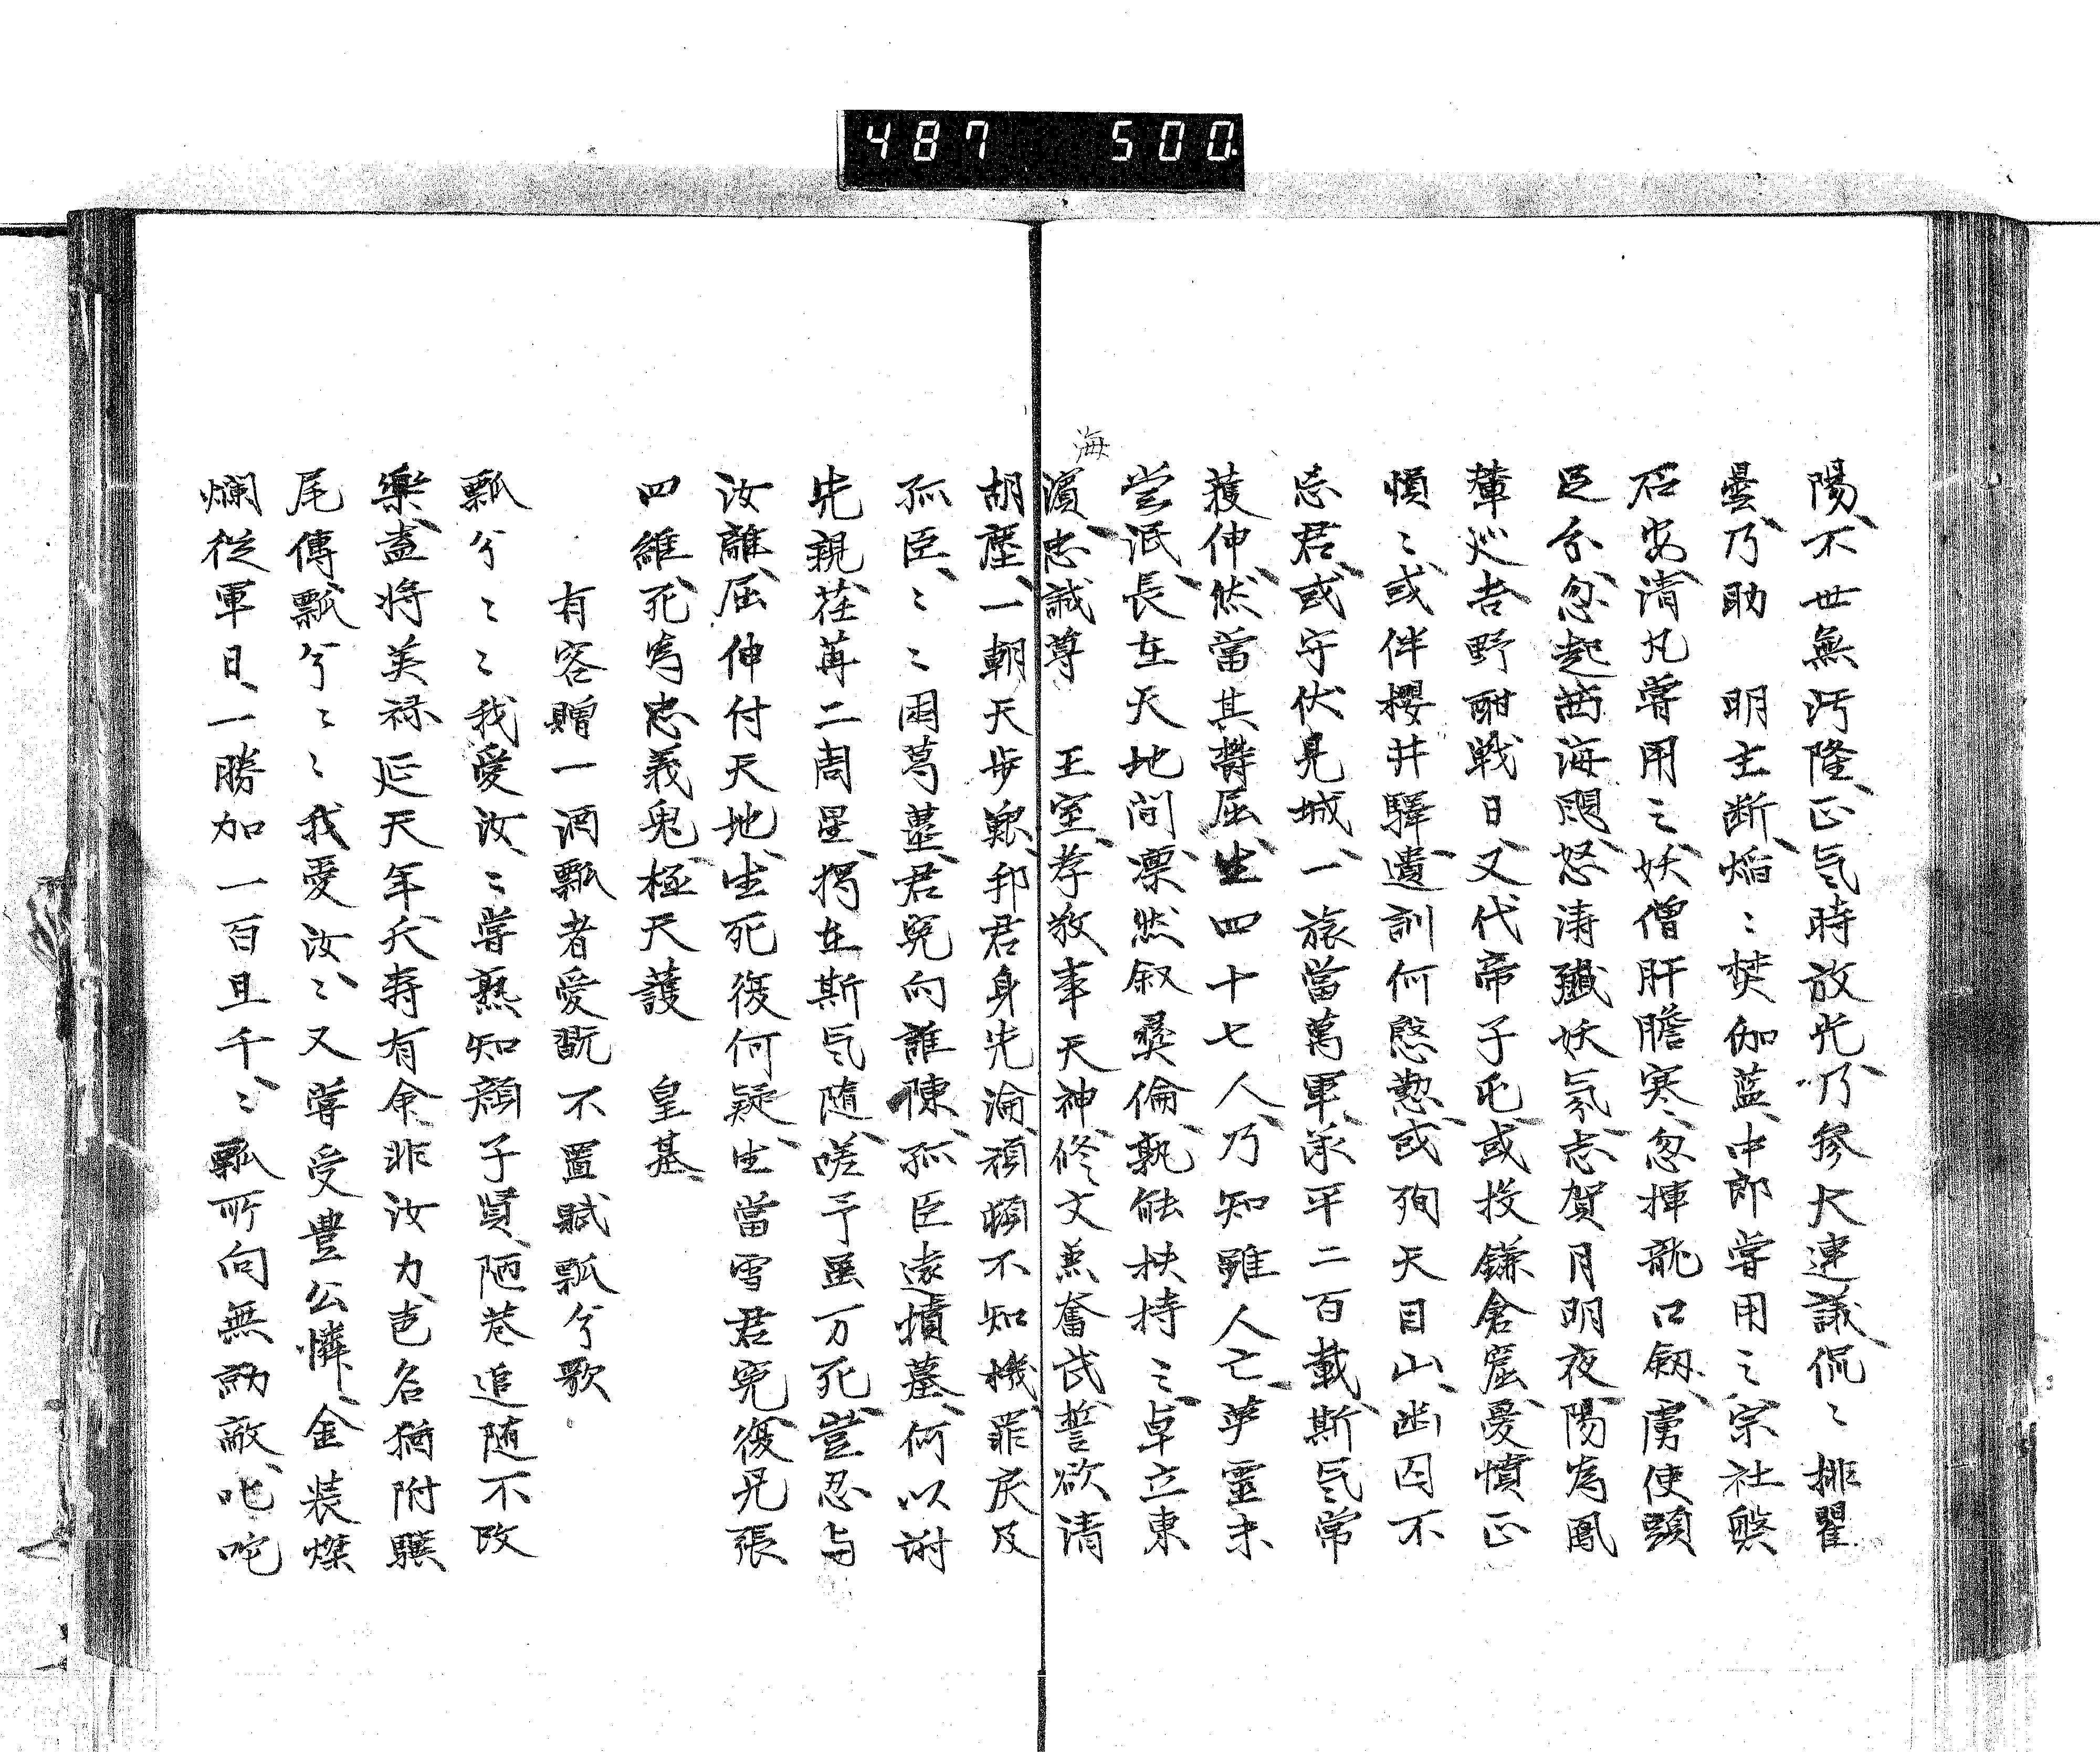 487 500
陽、不世無汚隆、正氣時放光、乃參大連議、侃〻排瞿
曇、乃助 明主断、焔〻焚伽藍、中郎甞用之、宗社磐
石安、清丸甞用之、妖僧肝膽寒、忽揮龍口劔、虜使頭
足分、忽起西海颶、怒涛殱妖氛、志賀月明夜、陽為鳳
輦巡、吉野酣戦日、又代帝子屯、或投鎌倉窟、憂憤正
愪〻、或伴櫻井驛、遺訓何慇懃、或殉天目山、幽囚不
忘君、或守伏見城、一旅當萬軍、承平二百載、斯氣常
獲伸、然當其欝屈、生四十七人、乃知雖人亡、英靈未
甞泯、長在天地间、凛然叙彛倫、孰能扶持之、卓立東
海
濱、忠誠尊 王室、孝敬事天神、修文兼奮武、誓欲清
胡塵、一朝天歩艱、邦君身先淪、頑鈍不知機、罪戻及
孤臣、〻〻困葛藟、君冤向誰陳、孤臣遠墳墓、何以謝
先親、荏苒二周星、獨在斯氣隨、嗟予虽万死、豈忍与
汝離、屈伸付天地、生死復何疑、生當雪君冤、復見張
四維、死為忠義鬼、極天護 皇基、
有客贈一酒瓢者愛翫不置賦瓢兮歌
瓢兮〻〻我愛汝、〻甞熟知顔子賢、陋巷追随不改
樂、盍将美禄延天年、夭寿有命非汝力、芭名猶附驥
尾傳、瓢兮〻〻我愛汝、〻又甞受豊公憐、金装燦
爛從軍日、一勝加一百且千、〻瓢所向無勍敵、叱咤